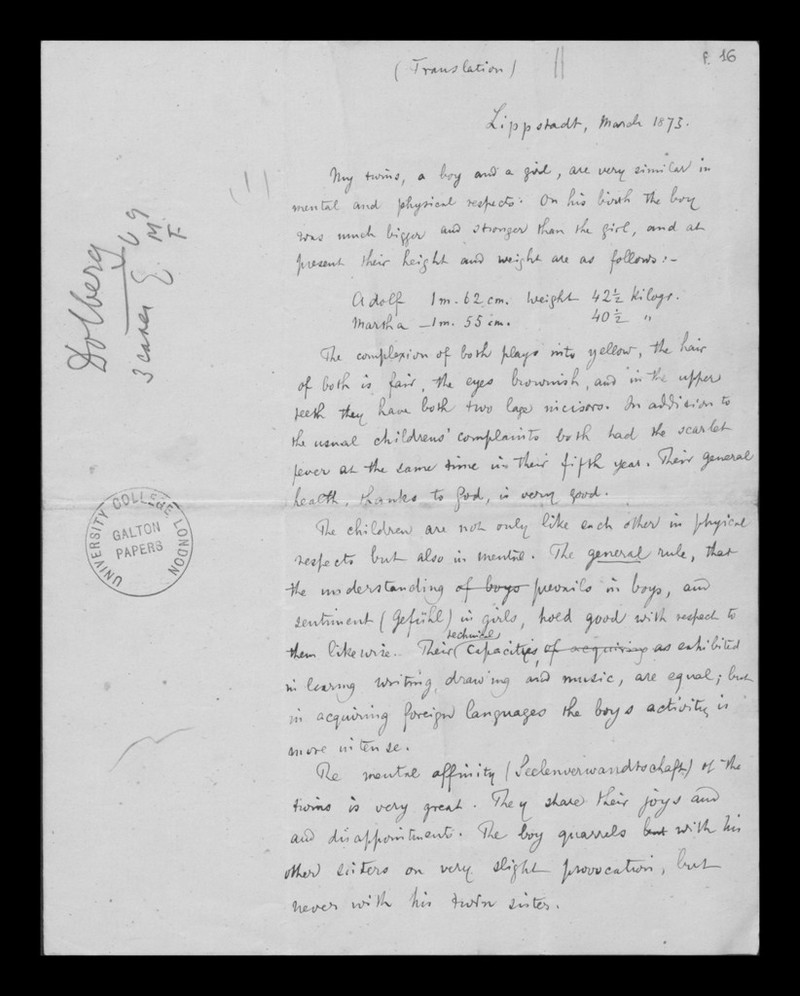 P. 16
(Translation)
Lippstadt, March 1873.
My twins, a boy and a girl, are very similar in
mental and physical respects. On his birth the boy
was much bigger and stronger than the girl, and at
present their height and weight are as follows:-
Adolf 1m. 62 cm. Weight 42½ kilogr.
Martha — 1m. 55 cm. 40½ "
The complexion of both plays into yellow, the hair
of both is fair, the eyes brownish, and in the upper
teeth they have both two large incisors. In addition to
the usual childrens' complaints both had the scarlet
fever at the same time in their fifth year. Their general
health, thanks to God, is very good.
The children are not only like each other in physical
respects but also in mental. The general rule, that
the understanding of boys prevails in boys, and
sentiment (Gefühl) in girls, hold good with respect to
them likewise. Their technical capacities, of acquiring as exhibited
in learing writing, drawing and music, are equal; but
in acquiring foreign languages the boys activity is
more intense.
The mental affinity (Seelenverwandtschaft) of the
twins is very great. They share their joys and
and disappointments. The boy quarrels but with his
other sisters on very slight provocation, but
never with his twin sister.
Dolberg
3 cases
M
F
UNIVERSITY COLLEGE LONDON
GALTON
PAPERS